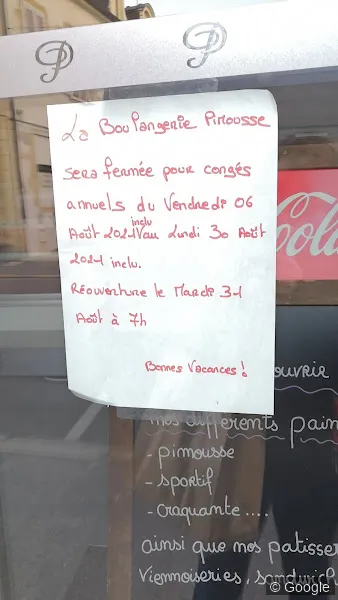 La Boulangerie Pimousse
sera fermée pour congés
annuels du Vendredi 06
Août 2021 inclu au Lundi 30 Août
2021 inclu.
Réouverture le Mardi 31
Août à 7h
Bonnes Vacances !
Cola
ouvrir
nos différents pain
- pimousse
- sportif
- craquante....
ainsi que nos patisser
Viennoiseries, sandwich
© Google